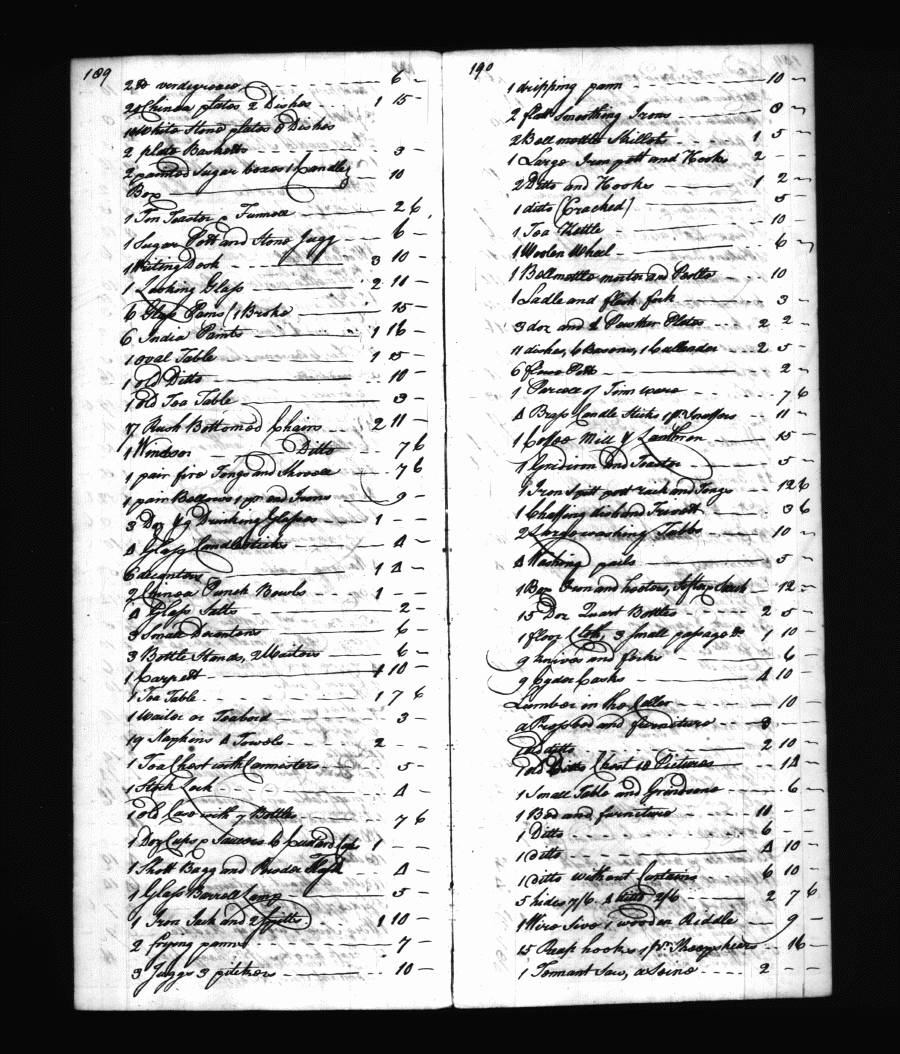 189
2 lb verdigreece 6 -
24 China plates 2 Dishes 1 15 -
White Stone plates 8 Dishes
2 plate Basketts 3 -
2 painted Sugar boxes 1 Candle
Box 10
1 Tin Toaster & Funnell 2 6
1 Sugar Pott and Stone Jugg 6 -
1 Writing Desk 3 10 -
1 Looking Glass 2 11 -
6 Glass Pains (1 Broke 15 -
6 India Paints 1 16 -
1 oval Table 1 5 -
1 old Ditto 10 -
1 old Tea Table 3 -
7 Rush Bottomed Chairs 2 11 -
1 Windsor Ditto 7 6
1 pair fire Tongs and Shovell 7 6
1 pair Bellows 1 pr and Irons 9 -
3 Doz & 9 Drinking Glasses 1 - -
4 Glass Candlesticks 4 -
6 decanters 1 4 -
2 China Punch Bowls 1 - -
4 Glass Salts 2 -
3 Small Decanters 6 -
3 Bottle Stands, 2 Waiters 6 -
1 Carpett 1 10 -
1 Tea Table 1 7 6
1 waiter or Teabord 3 -
19 Napkins 4 Towels 2 - -
1 Tea Chest with Cannesters 5 -
1 Stock Lock 4 -
1 old Case with 7 Bottles 7 6
1 Doz Cups & Saucers 6 Custard Cups 1 - -
1 Shott Bagg and Powder Flask 4 -
1 Glass Barrell Lamp 5 -
1 Iron Jack and 2 Spitts 1 10 -
2 frying panns 7 -
3 Juggs 3 pitchers 10 -
190
1 dripping pann 10 -
2 flatt Smoothing Irons 8 -
2 Bell mettle Skillets 1 5 -
1 Large Iron pott and Hooks 2 -
2 Ditto and Hooks 1 2 -
1 ditto (Cracked) 5
1 Tea Kettle 10 -
1 Woolen Wheel 6 -
1 Bellmettle mortar and Pestle 10
1 Ladle and flesh fork 3 -
3 doz and 4 Pewter Plates 2 2 -
11 dishes, 6 Basons, 1 Cullender 2 5 -
6 Potts 2 -
1 Parcell of Tinn ware 7 6
4 Brass Candle Sticks 1 pr Snuffers 11 -
1 Coffee Mill & Lanthorn 15 -
1 Gridiron and Toaster 5 -
1 Iron Spitt pott rack and Tongs 12 6
1 Chaffing dish and Trevett 3 6
2 Large washing Tubbs 10 -
4 Washing pails 5 -
1 Box Iron and heaters, 12 -
15 Doz Quart Bottles 2 5 -
1 floor Cloth, 3 small passage Do 1 10 -
9 knives and forks 6 -
9 Cyder Casks 4 10 -
Lumber in the Celler 10
a Pressbed and furniture 3 -
1 old ditto 2 10 -
1 old Ditto Chest 18 Pictures 14
1 Small Table and Grindstone 6 -
1 Bed and furniture 11 - -
1 Ditto 6 - -
1 ditto 4 10 -
1 ditto without Curtains 6 10 -
5 hides 7/6 4 ditto 2/6 2 7 6
1 Wire Sive 1 wooden Riddle 9 -
15 Reap hooks 1 pr Sheepshears 16 -
1 Tennant Saw, a Seine 2 - -